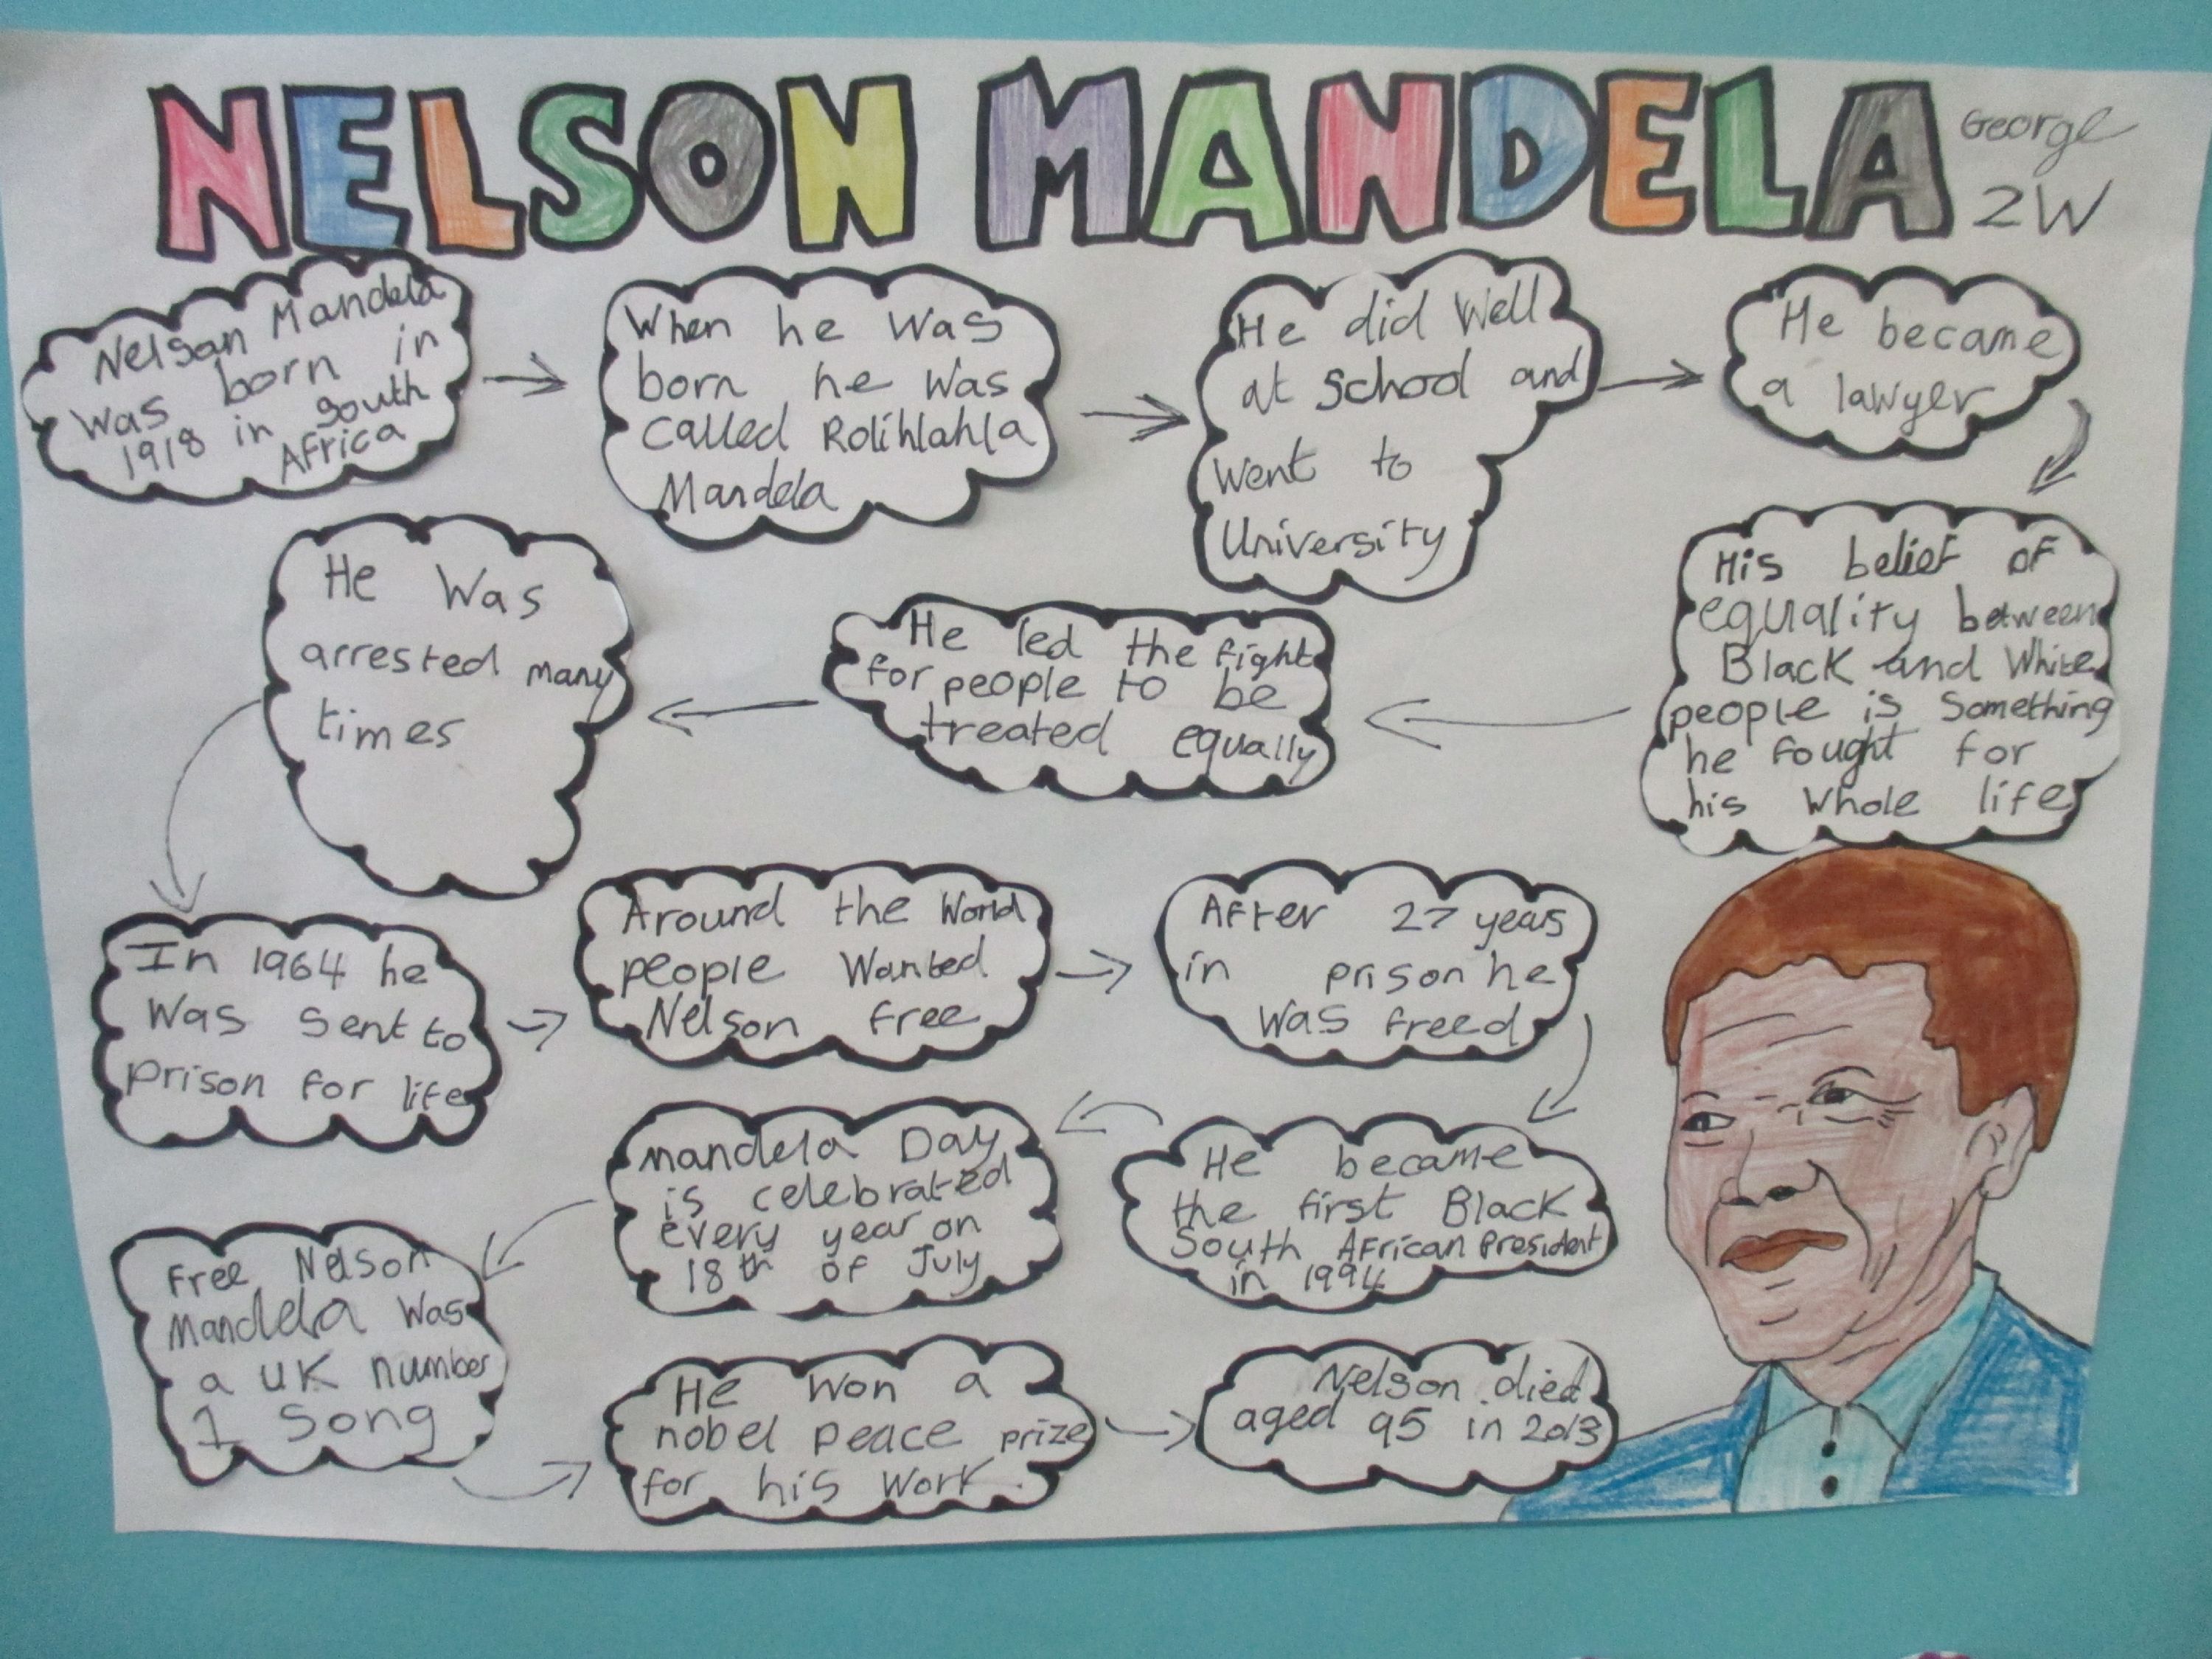 NELSON MANDELA
George
2W
Nelson Mandela
was born in
1918 in South
Africa
When he was
born he was
called Rolihlahla
Mandela
He did well
at school and
went to
University
He became
a lawyer
His belief of
equality between
Black and White
people is something
he fought for
his whole life
He led the fight
for people to be
treated equally
He was
arrested many
times
In 1964 he
was sent to
prison for life
Around the World
people wanted
Nelson free
After 27 years
in prison he
was freed
He became
the first Black
South African President
in 1994
mandela Day
is celebrated
every year on
18th of July
Free Nelson
Mandela was
a UK number
1 song
He won a
nobel peace prize
for his work.
Nelson died
aged 95 in 2013